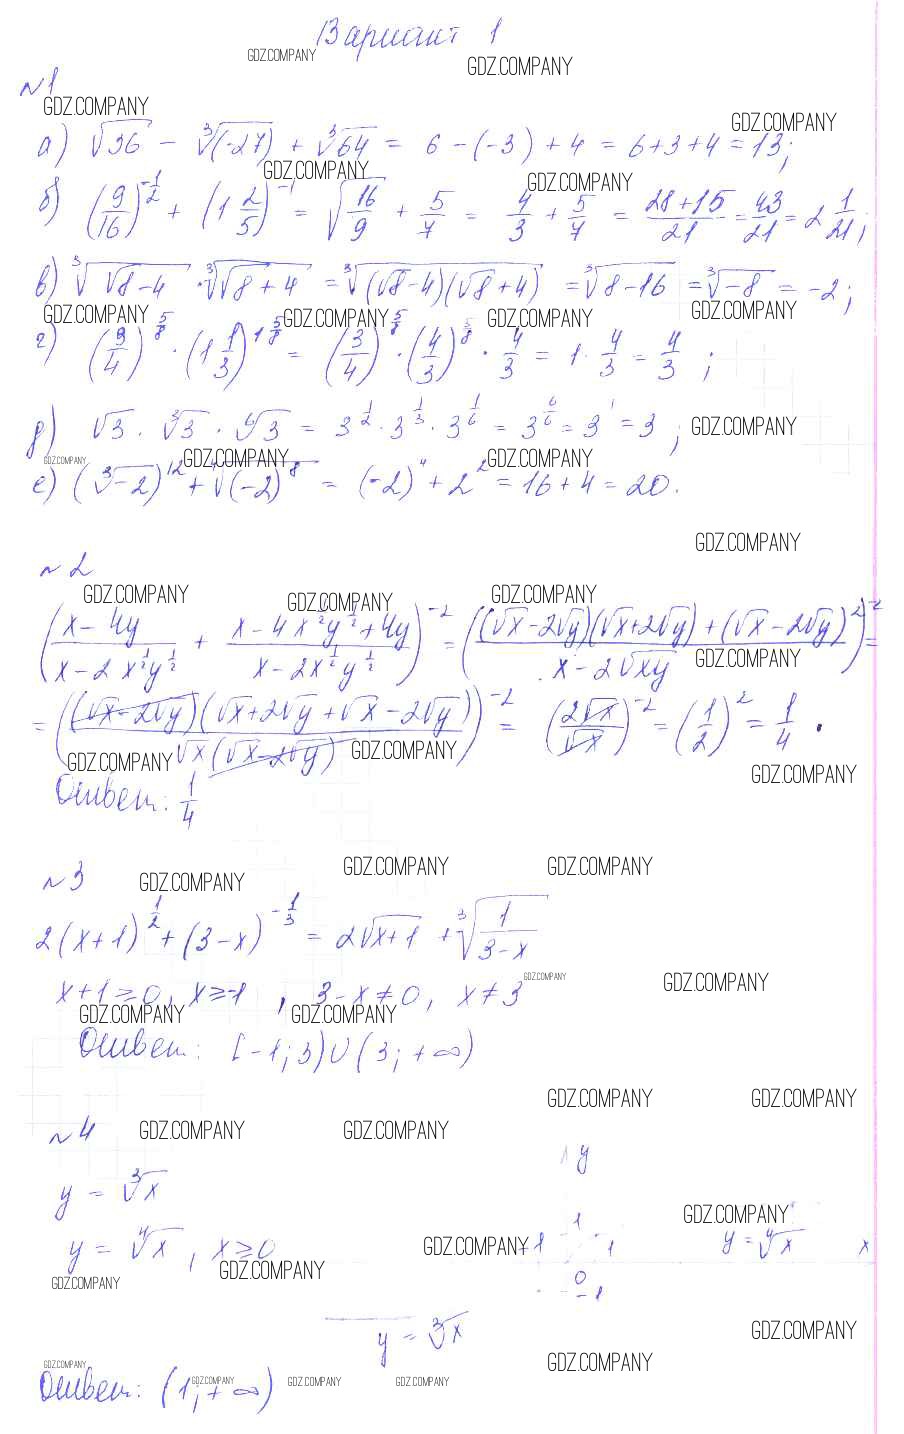 Вариант 1
GDZ.COMPANY GDZ.COMPANY
№1
GDZ.COMPANY GDZ.COMPANY
а) √36 − ∛(-27) + ∛64 = 6 − (−3) + 4 = 6+3+4 = 13;
GDZ.COMPANY GDZ.COMPANY
б) (9/16)^(-1/2) + (1 2/5)^(-1) = √(16/9) + 5/7 = 4/3 + 5/7 = (28+15)/21 = 43/21 = 2 1/21;
в) ∛(√8−4) · ∛(√8+4) = ∛((√8−4)(√8+4)) = ∛(8−16) = ∛(−8) = −2;
GDZ.COMPANY GDZ.COMPANY GDZ.COMPANY GDZ.COMPANY
г) (3/4)^(5/8) · (1 1/3)^(1 5/8) = (3/4)^(5/8) · (4/3)^(5/8) · 4/3 = 1 · 4/3 = 4/3;
д) √3 · ∛3 · ⁶√3 = 3^(1/2) · 3^(1/3) · 3^(1/6) = 3^(6/6) = 3^1 = 3; GDZ.COMPANY
GDZ.COMPANY GDZ.COMPANY GDZ.COMPANY
е) (∛−2)^12 + ⁴√(−2)^8 = (−2)^4 + 2^2 = 16 + 4 = 20.
GDZ.COMPANY
№2
GDZ.COMPANY GDZ.COMPANY GDZ.COMPANY
((x−4y)/(x−2x^(1/2)y^(1/2)) + (x−4x^(1/2)y^(1/2)+4y)/(x−2x^(1/2)y^(1/2)))^(-2) = (((√x−2√y)(√x+2√y)+(√x−2√y)^2)/(x−2√xy))^(-2) =
GDZ.COMPANY
= (((√x−2√y)(√x+2√y+√x−2√y))/(√x(√x−2√y)))^(-2) = (2√x/√x)^(-2) = (1/2)^2 = 1/4.
GDZ.COMPANY GDZ.COMPANY GDZ.COMPANY
Ответ: 1/4
GDZ.COMPANY GDZ.COMPANY
№3 GDZ.COMPANY
2(x+1)^(1/2) + (3−x)^(-1/3) = 2√(x+1) + ∛(1/(3−x))
GDZ.COMPANY GDZ.COMPANY
x+1≥0, x≥−1, 3−x≠0, x≠3
GDZ.COMPANY GDZ.COMPANY
Ответ: [−1; 3)∪(3; +∞)
GDZ.COMPANY GDZ.COMPANY
№4 GDZ.COMPANY GDZ.COMPANY
y
y = ∛x
GDZ.COMPANY
1
y = ⁴√x, x≥0 GDZ.COMPANY −1 1 y = ⁴√x x
GDZ.COMPANY GDZ.COMPANY
0
−1
y = ∛x GDZ.COMPANY
GDZ.COMPANY GDZ.COMPANY
Ответ: (1; +∞) GDZ.COMPANY GDZ.COMPANY GDZ.COMPANY